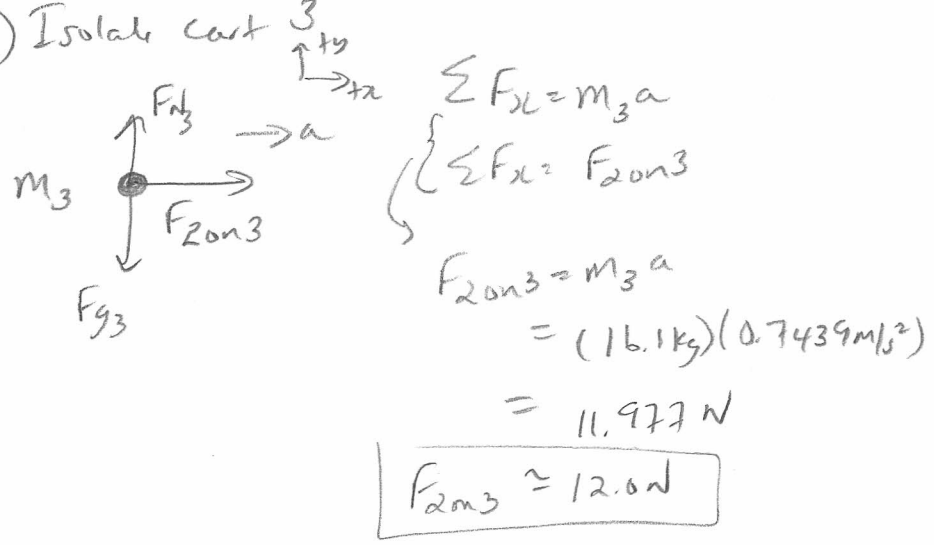 ) Isolate cart 3
+y
+x
FN3
→ a
m3
F2on3
Fg3
ΣFx = m3a
ΣFx = F2on3
F2on3 = m3a
= (16.1kg)(0.7439m/s²)
= 11.977 N
F2on3 ≃ 12.0N